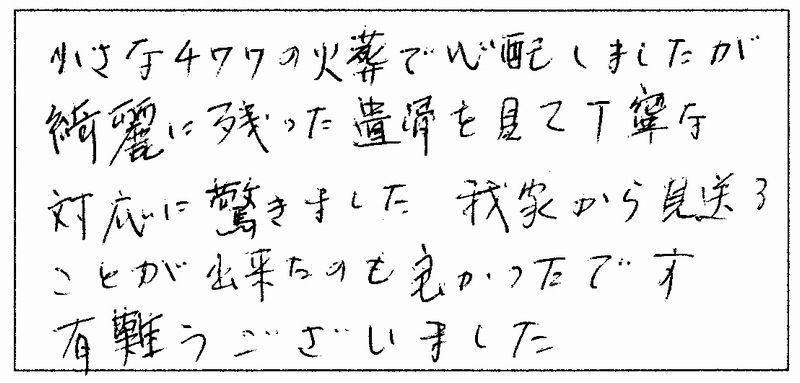 小さな4ワワの火葬で心配しましたが
綺麗に残った遺骨を見て丁寧な
対応に驚きました 我家から見送る
ことが出来たのも良かったです
有難うございました